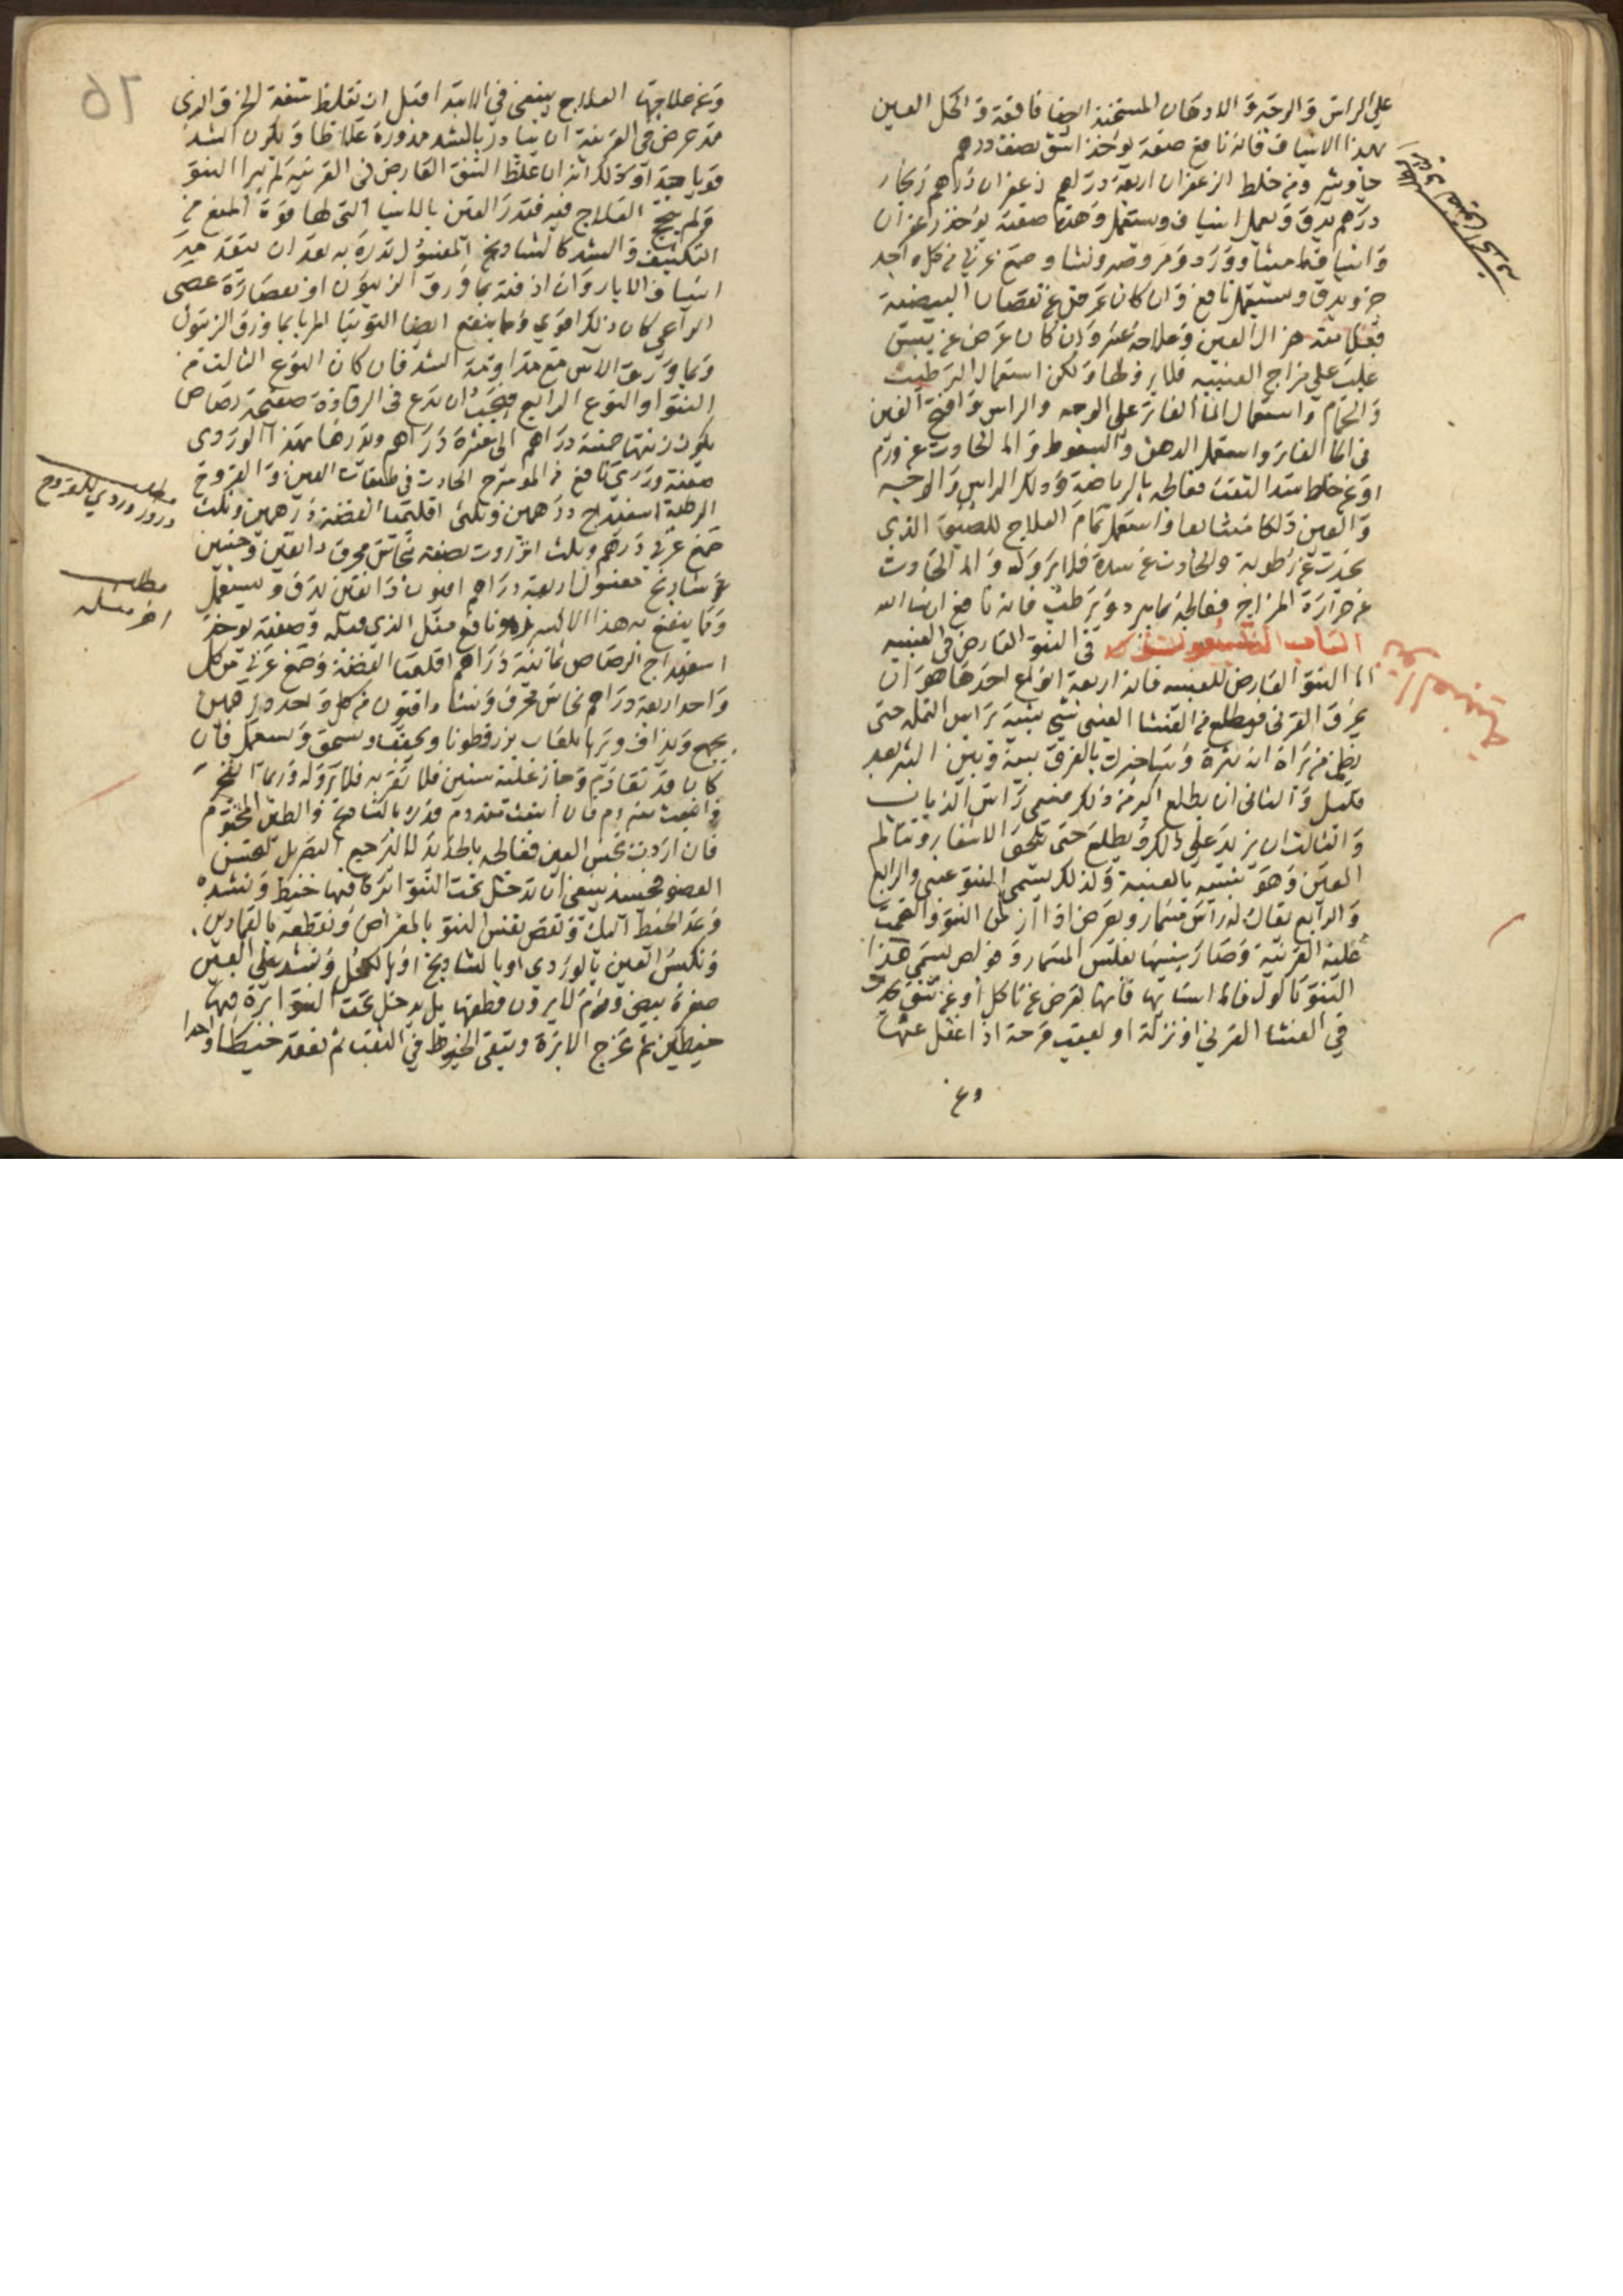 على الراس والوجه والادهان المسخنة ايضا نافعة وا كحل العين
بهذا الاشياف فانه نافع صفة يوخذ اشق نصف درهم
جاوشير ومن خلط الزعفران اربعة دراهم زعفران دراهم زنجار
درهم يدق ويعمل اشياف ويستعمل وهذه صفة يوخذ زعفران
واشياف ماميثا وورد ومر وصبر ونشا وصمغ عربي من كل واحد
جزو يدق ويستعمل نافع وان كان عرض عن نقصان البيضية
فعلامته هزال العين وعلاجه عسر وان كان عرض عن يبس
غلب على مزاج العنبية فلا برو لها ولكن استعمال الترطيب
والحمام واستعمال الما الفاتر على الوجه والراس وافتح العين
في الما الفاتر واستعمل الدهن والسعوط واما الحادث عن ورم
او عن خلط سد الثقب فعالجه بالرياضة ودلك الراس والوجه
والعين دلكا متتابعا واستعمل تمام العلاج للضيق الذي
يحدث عن رطوبة والحادث عن سدة فلا برو له واما الحادث
عن حرارة المزاج فعالجه بما يبرد ويرطب فانه نافع ان شا الله
الباب في النتو العارض في العنبيه
اما النتو العارض للعنبيه فانه اربعة انواع احدها هو ان
يخرق القرني فيطلع من الغشا العنبي شي شبيه براس النملة حتى
يظن من يراه انه بثرة وسنخبرك بالفرق بينه وبين البثر بعد
قليل والثاني ان يطلع اكبر من ذلك فيسمى راس الذبابب
والثالث ان يزيد على ذلك ويطلع حتى يلحق الاشفار ويتالم
العين وهو شبيه بالعنبة ولذلك يسمى النتو عنبي والرابع
والرابع يقال له راس مسمار ويعرض اذا ازمن النتو والتحمت
عليه القرنية وصار شبيها بفلس المسمار وقوم يسمي هذا
النتو تالول فاما اسبابها فانها تعرض عن تاكل او عن نتو
في الغشا القرني او نزلة او بعقب قرحة اذا اغفل عنها
وعن
وعن علاجها العلاج ينبغي في الابتدا قبل ان تغلظ شفة الخرق الذي
قد عرض في القرنية ان يبادر بالشد مذرورة غلاظا ويكون الشد
قويا جدا وذلك انه ان غلظ النتو العارض في القرنية لم يبرا النتو
ولم ينجح العلاج فيه فتدر العين بالاشيا التي لها قوة المنع من
التكثيف والشد كالشادنج المغسول تذره به بعد ان يتقدمه
اشياف الابار وان اذفته بما ورق الزيتون او بعصارة عصى
الراعي كان ذلك اقوى ومما ينفع ايضا التوتيا المربا بما ورق الزيتون
وبما ورق الاس مع مداومة الشد فان كان النوع الثالث من
النتو او النوع الرابع فيجب ان يدع في الرفادة صفيحة رصاص
يكون زنتها خمسة دراهم الى عشرة دراهم وتذرها بهذا الوردي
صفة وردي نافع من المورسرج الحادث في طبقات العين والقروح
الرطبة اسفيداج درهمين وثلثي اقليميا الفضة درهمين وثلث
صمغ عربي درهم وثلث انزروت نصفه نحاس محرق دانقين وحبتين
شادنج مغسول اربعة دراهم افيون دانقين يدق ويستعمل
ومما ينفع به هذا الاكسير وهو نافع مثل الذي قبله وصفته يوخذ
اسفيداج الرصاص ثمانية دراهم اقليميا الفضة وصمغ عربي من كل
واحد اربعة دراهم نحاس محرق ونشا وافيون من كل واحد درهمين
يجمع ويداف ويربا بلعاب بزرقطونا ويجفف ويسحق ويستعمل فان
كان قد تقادم وجاز عليه سنين فلا تقربه فلا برو له وربما انفجر
وانبعث منه دم فان انبعث منه دم فذره بالشادنج والطين المختوم
فان اردت تحسين العين فعالجه بالحديد لا لترجيع البصر بل لتحسين
العضو فحينيذ ينبغي ان تدخل تحت النتو ابرة فيها خيط وتشده
وعند الخيط اليك وتقص نفس النتو بالمقراض وتقطعه بالقمادين
وتكبس العين بالوردي او بالشادنج او بالكحل وتشد على العين
صفرة بيض وقوم لا يرون قطعها بل يدخل تحت النتو ابرة فيها
خيطين ثم تخرج الابرة ويبقى الخيوط في الثقب ثم تعقد خيطا واحدا
مطلب
درور وردي للقروح
مطلب
اخر مثله